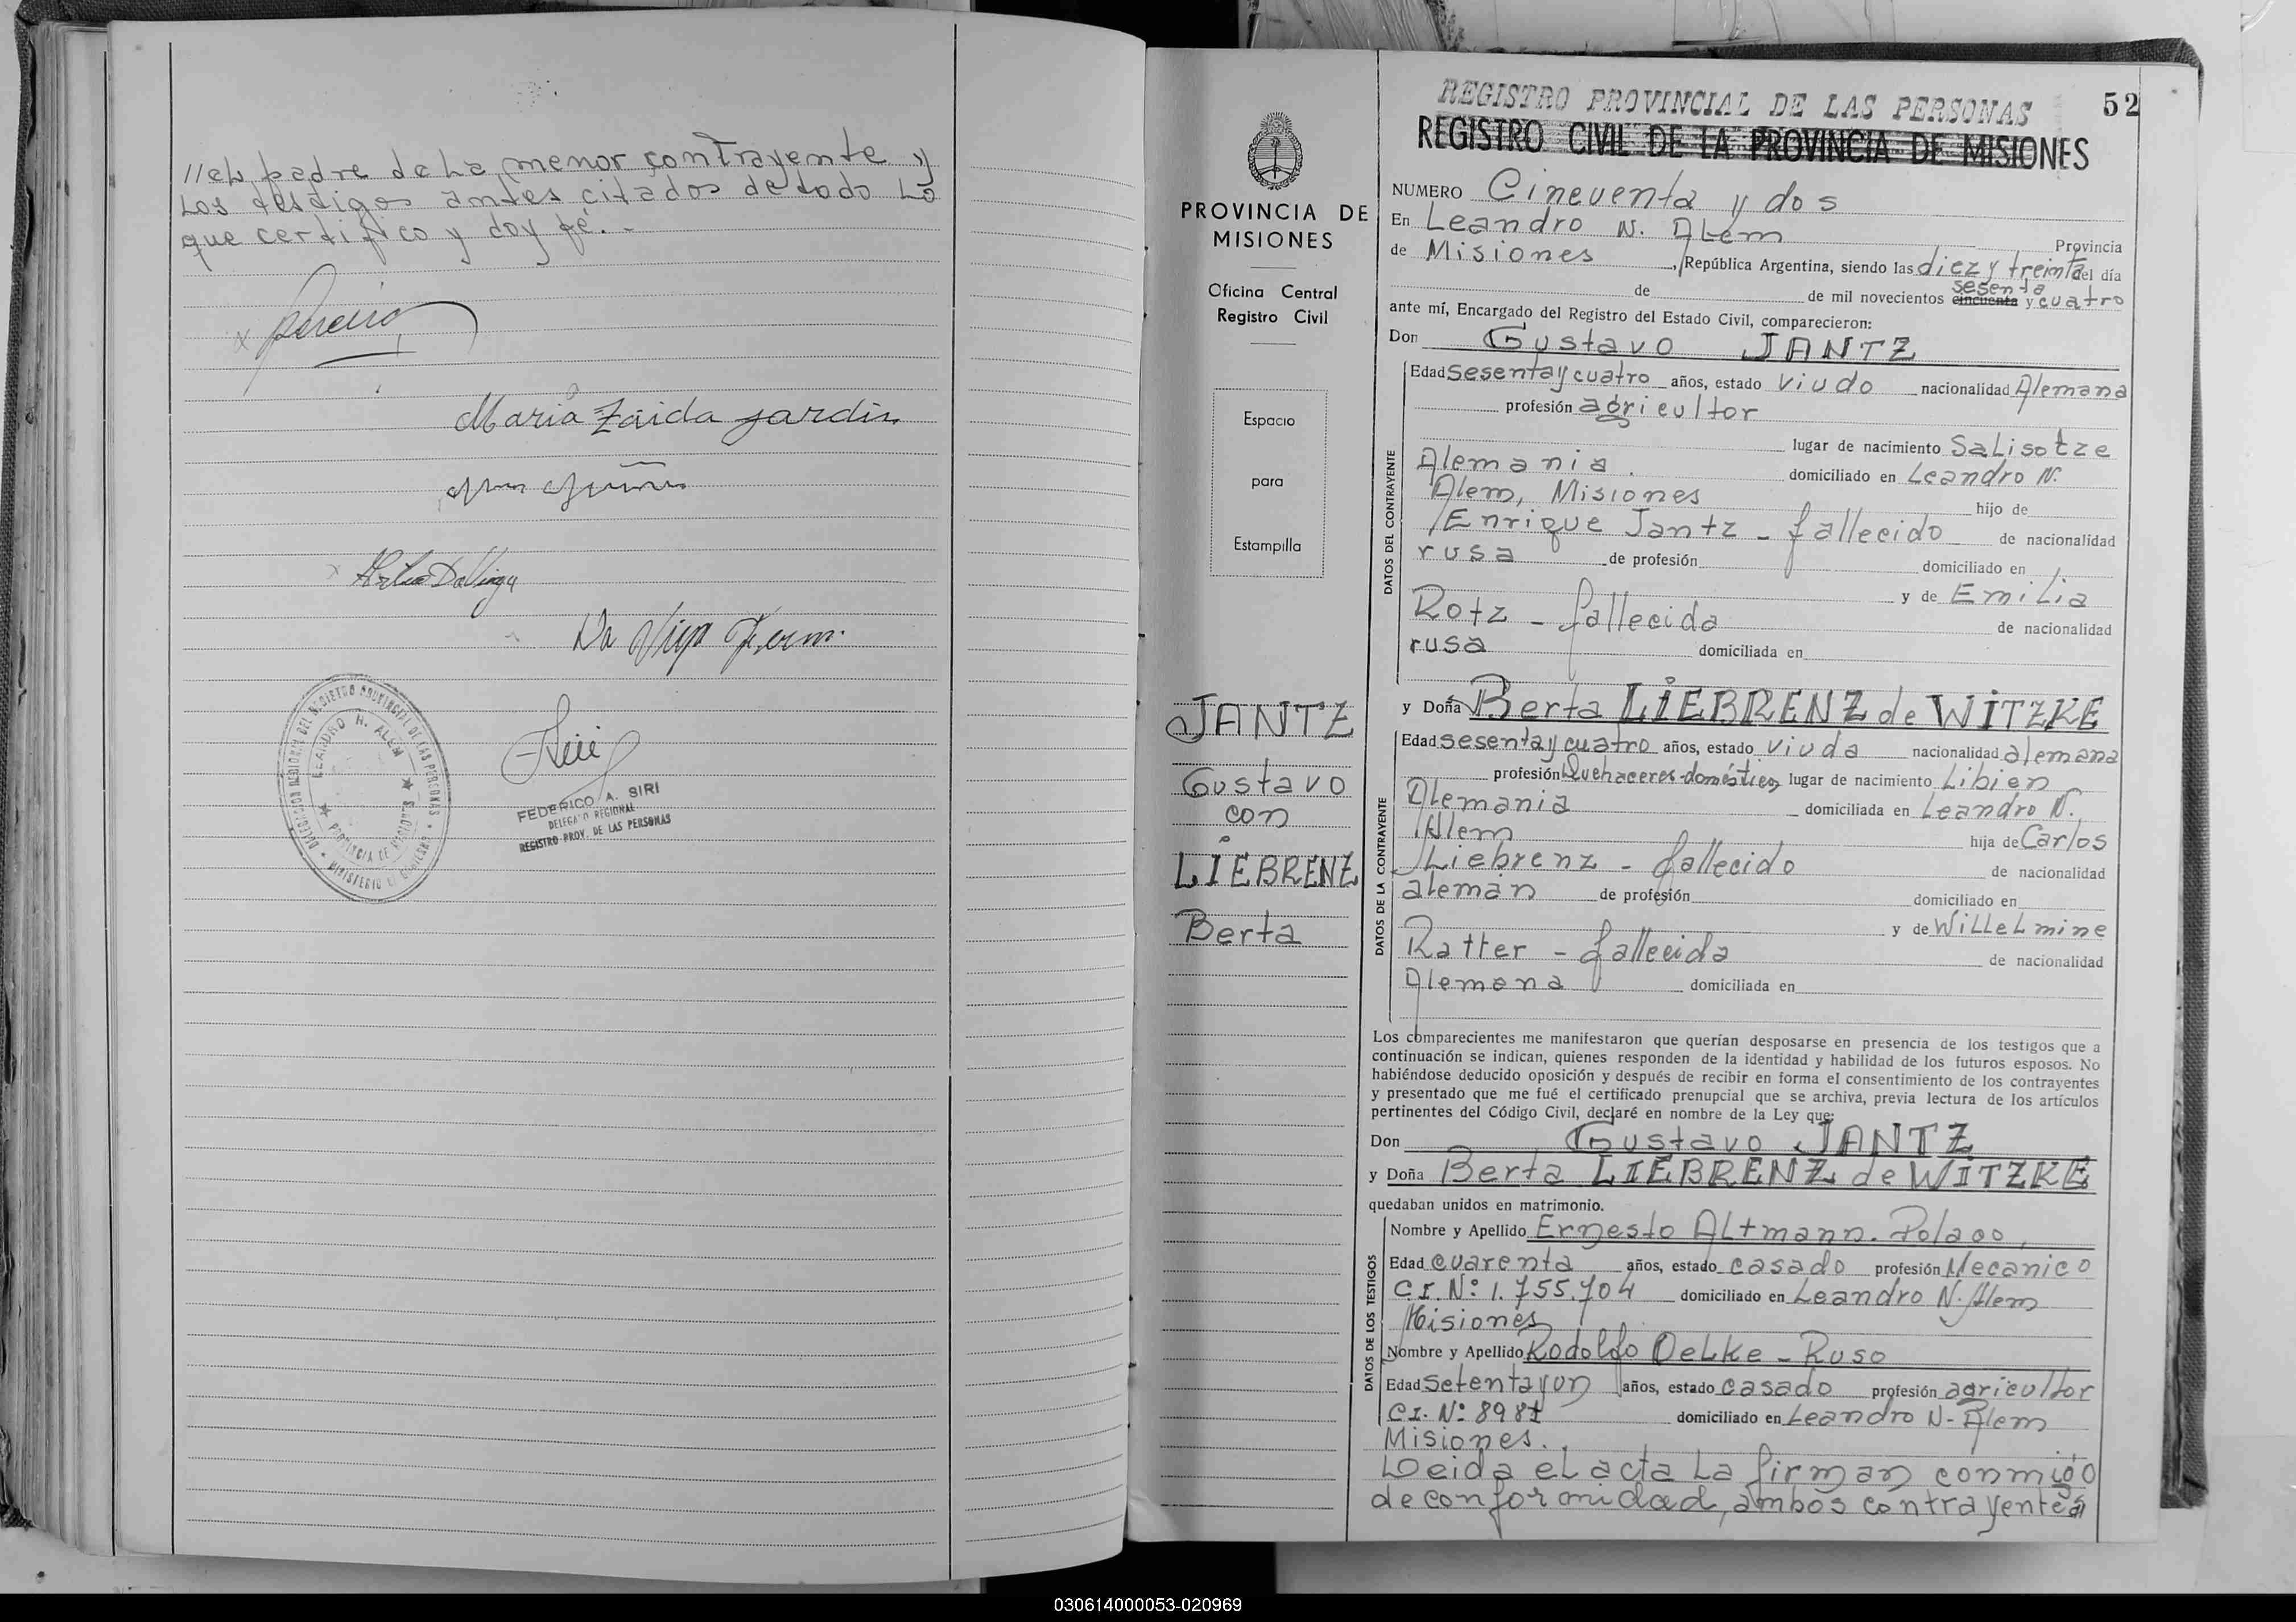 //el padre de la menor contrayente y
los testigos antes citados de todo lo
que certifico y doy fé.-
Maria Zaida Jardin
DELEGACION REGIONAL DEL REGISTRO PROVINCIAL DE LAS PERSONAS
LEANDRO N. ALEM
PROVINCIA DE MISIONES
MINISTERIO DE GOBIERNO
FEDERICO A. SIRI
DELEGADO REGIONAL
REGISTRO PROV. DE LAS PERSONAS
PROVINCIA DE
MISIONES
Oficina Central
Registro Civil
Espacio
para
Estampilla
JANTZ
Gustavo
con
LIEBRENZ
Berta
REGISTRO PROVINCIAL DE LAS PERSONAS
52
REGISTRO CIVIL DE LA PROVINCIA DE MISIONES
NUMERO Cincuenta y dos
En Leandro N. Alem Provincia
de Misiones, República Argentina, siendo las diez y treinta del día
de de mil novecientos cincuenta sesenta y cuatro
ante mí, Encargado del Registro del Estado Civil, comparecieron:
Don Gustavo JANTZ
DATOS DEL CONTRAYENTE
Edad sesenta y cuatro años, estado viudo nacionalidad Alemana
profesión agricultor
lugar de nacimiento Salisotze
Alemania. domiciliado en Leandro N.
Alem, Misiones hijo de
Enrique Jantz - fallecido de nacionalidad
rusa de profesión domiciliado en
y de Emilia
Rotz - fallecida de nacionalidad
rusa domiciliada en
y Doña Berta LIEBRENZ de WITZKE
DATOS DE LA CONTRAYENTE
Edad sesenta y cuatro años, estado viuda nacionalidad alemana
profesión Quehaceres domésticos lugar de nacimiento Libien
Alemania domiciliada en Leandro N.
Alem hija de Carlos
Liebrenz - fallecido de nacionalidad
alemán de profesión domiciliado en
y de Willelmine
Ratter - fallecida de nacionalidad
Alemana domiciliada en
Los comparecientes me manifestaron que querían desposarse en presencia de los testigos que a
continuación se indican, quienes responden de la identidad y habilidad de los futuros esposos. No
habiéndose deducido oposición y después de recibir en forma el consentimiento de los contrayentes
y presentado que me fué el certificado prenupcial que se archiva, previa lectura de los artículos
pertinentes del Código Civil, declaré en nombre de la Ley que:
Don Gustavo JANTZ
y Doña Berta LIEBRENZ de WITZKE
quedaban unidos en matrimonio.
DATOS DE LOS TESTIGOS
Nombre y Apellido Ernesto Altmann. Polaco,
Edad cuarenta años, estado casado profesión Mecanico
C.I. Nº 1.755.704 domiciliado en Leandro N. Alem
Misiones
Nombre y Apellido Rodolfo Oelke - Ruso
Edad setenta y un años, estado casado profesión agricultor
C.I. Nº 8981 domiciliado en Leandro N. Alem
Misiones.
Leida el acta la firman conmigo
de conformidad, ambos contrayentes
030614000053-020969